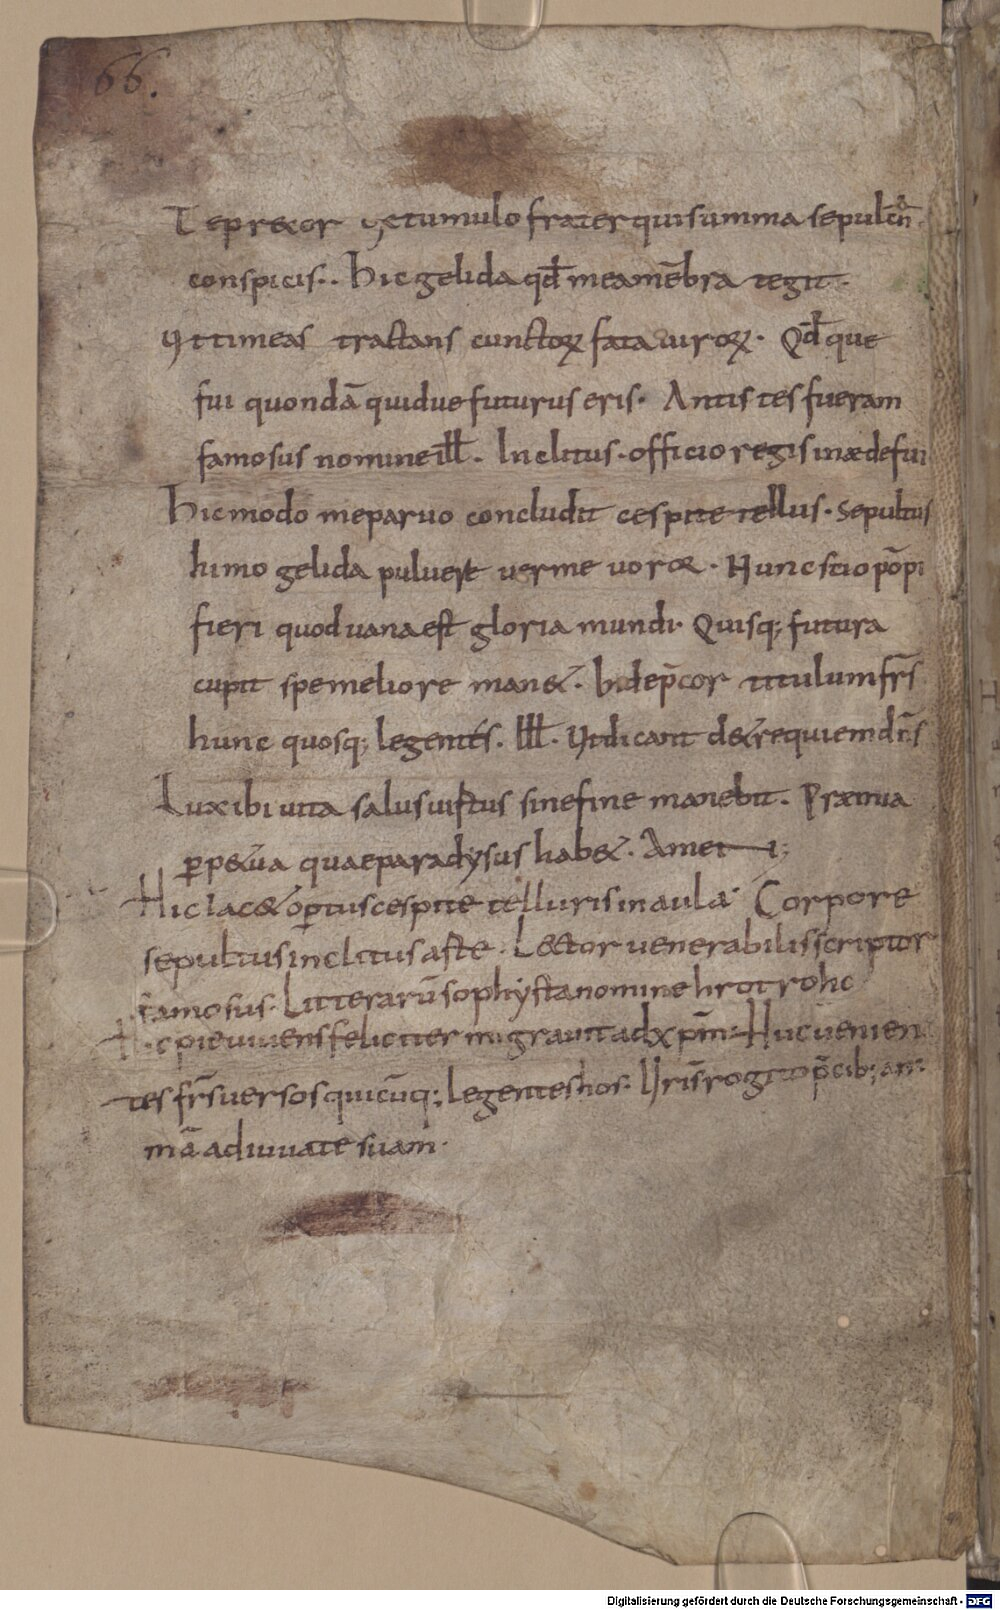 66.
Te precor & tumulo frater qui summa sepulchri
conspicis.. Hic gelida qđ mea mēbra tegit.
Ut timeas tractans cunctoꝝ fata uiroꝝ. Qđ que
fui quondā quidue futurus eris. Antistes fueram
famosus nomine ill. Inclitus. officio regis in æde fui
Hic modo me paruo concludit cespite tellus. Sepultus
humo gelida puluere uerme uoror. Hunc scio
fieri quod uana est gloria mundi. Quisq; futura
cupit spe meliore man&. Inde p̄cor titulum frs̄
hunc quosq; legentes. Ill. Ut dicant d& requiem dn̄s
Lux ibi uita salus uictus sine fine manebit. Præmia
ꝑp&ua quae paradysus hab&. Amen;
Hic iac& oꝑtus cespite telluris in aula. Corpore
sepultus inclitus aste. Lector uenerabilis scriptor
famosus. Litterarū sophysta nomine hrotrohc
Hic pie uiuens feliciter migrauit ad xp̄m. Huc uenien
tes frs̄ uersos quicūq; legentes hos. Urīs rogito p̄cib; ani
mā adiuuate suam.
Digitalisierung gefördert durch die Deutsche Forschungsgemeinschaft - DFG